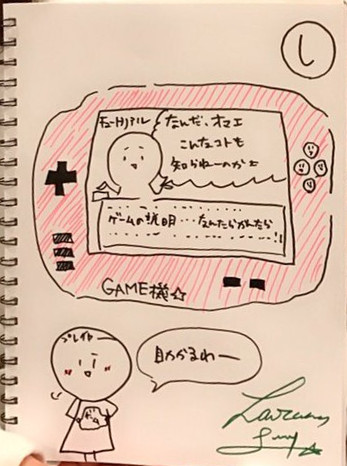 し
チュートリアル
なんだ、オマエ
こんなコトも
知らねーのかよ
ゲームの説明…なんたらかんたら
!!
GAME機☆
プレイヤー
助かるわー